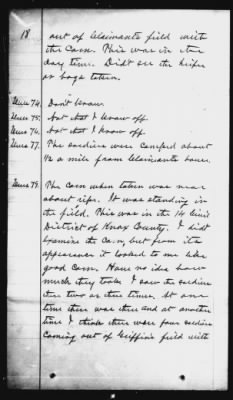 18
out of Claimants field with
the Corn. This was in the
day time. Didn't see the heifer
or hogs taken.
Ans 74. Don't know.
Ans 75. Not that I know off.
Ans 76. Not that I know off.
Ans 77. The soldiers were camped about
1/2 a mile from Claimants home.
Ans 79. The corn when taken was near
about ripe. It was standing in
the field. This was in the 14 Civil
District of Knox County. I didt
Examine the Corn, but from its
appearance it looked to me like
good Corn. Have no idea how
much they took. I saw the soldiers
there two or three times. At one
time there was there and at another
time I think there were four soldiers
Coming out of Griffin's field with